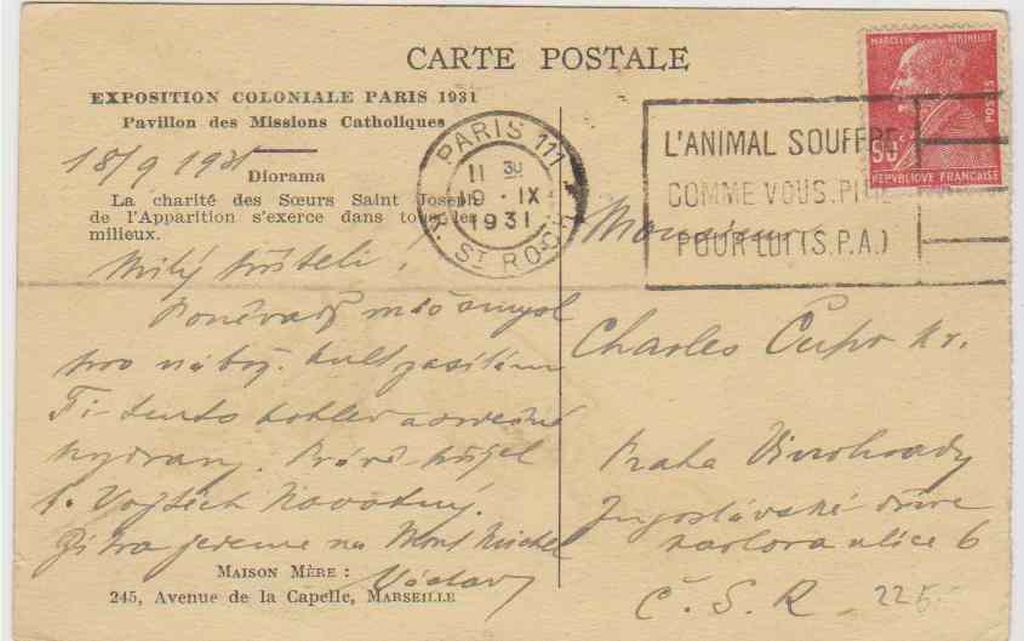 CARTE POSTALE
EXPOSITION COLONIALE PARIS 1931
Pavillon des Missions Catholiques
18/9 1931
Diorama
La charité des Sœurs Saint Joseph
de l'Apparition s'exerce dans tous les
milieux.
Milý příteli!
Poněvadž máš smysl
pro nábož. kult zasílám
Ti tento pohled a srdečné
pozdravy. Právě přijel
p. Vojtěch Novotný.
Zítra jedeme na Mont Michel
Václav
MAISON MÈRE :
245, Avenue de la Capelle, MARSEILLE
MARCELIN BERTHELOT
POSTES
90c
REPVBLIQVE FRANÇAISE
PARIS 111
11 30
19 - IX
1931
R. ST ROCH
L'ANIMAL SOUFFRE
COMME VOUS. PITIÉ
POUR LUI (S.P.A.)
Monsieur
Charles Cupr
Praha Vinohrady
Jugoslávská dříve
Karlova ulice 6
Č. S. R.
225.-